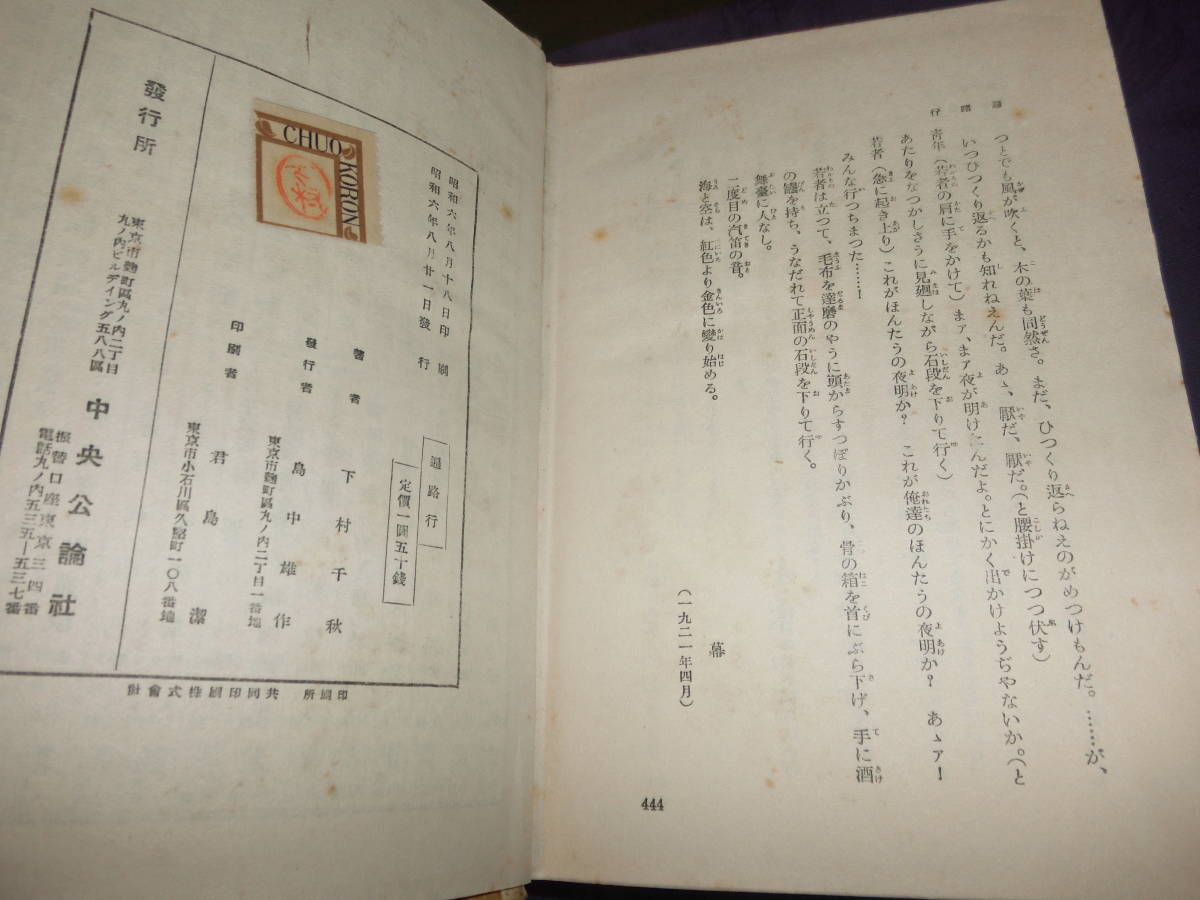 通路行
つとでも風が吹くと、木の葉も同然さ。まだ、ひつくり返らねえのがめつけもんだ。……が、
いつひつくり返るかも知れねえんだ。あゝ、厭だ、厭だ。(と腰掛けにつつ伏す)
靑年(若者の肩に手をかけて)まァ、まァ夜が明けたんだよ。とにかく出かけようぢやないか。(と
あたりをなつかしさうに見廻しながら石段を下りて行く)
若者(急に起き上り)これがほんたうの夜明か? これが俺達のほんたうの夜明か? あゝァ!
みんな行つちまつた……!
若者は立つて、毛布を達磨のやうに頭からすつぽりかぶり、骨の箱を首にぶら下げ、手に酒
の罎を持ち、うなだれて正面の石段を下りて行く。
舞臺に人なし。
二度目の汽笛の音。
海と空は、紅色より金色に變り始める。
幕
(一九二一年四月)
444
CHUO KORON
昭和六年八月十八日印刷
昭和六年八月廿一日發行
通路行
定價一圓五十錢
著者 下村千秋
東京市麴町區丸ノ內二丁目一番地
發行者 島中雄作
東京市小石川區久堅町一〇八番地
印刷者 君島潔
發行所
東京市麴町區丸ノ內二丁目
丸ノ內ビルデイング五八八區
中央公論社
振替口座東京三四番
電話丸ノ內五三五―五三七番
印刷所 共同印刷株式會社